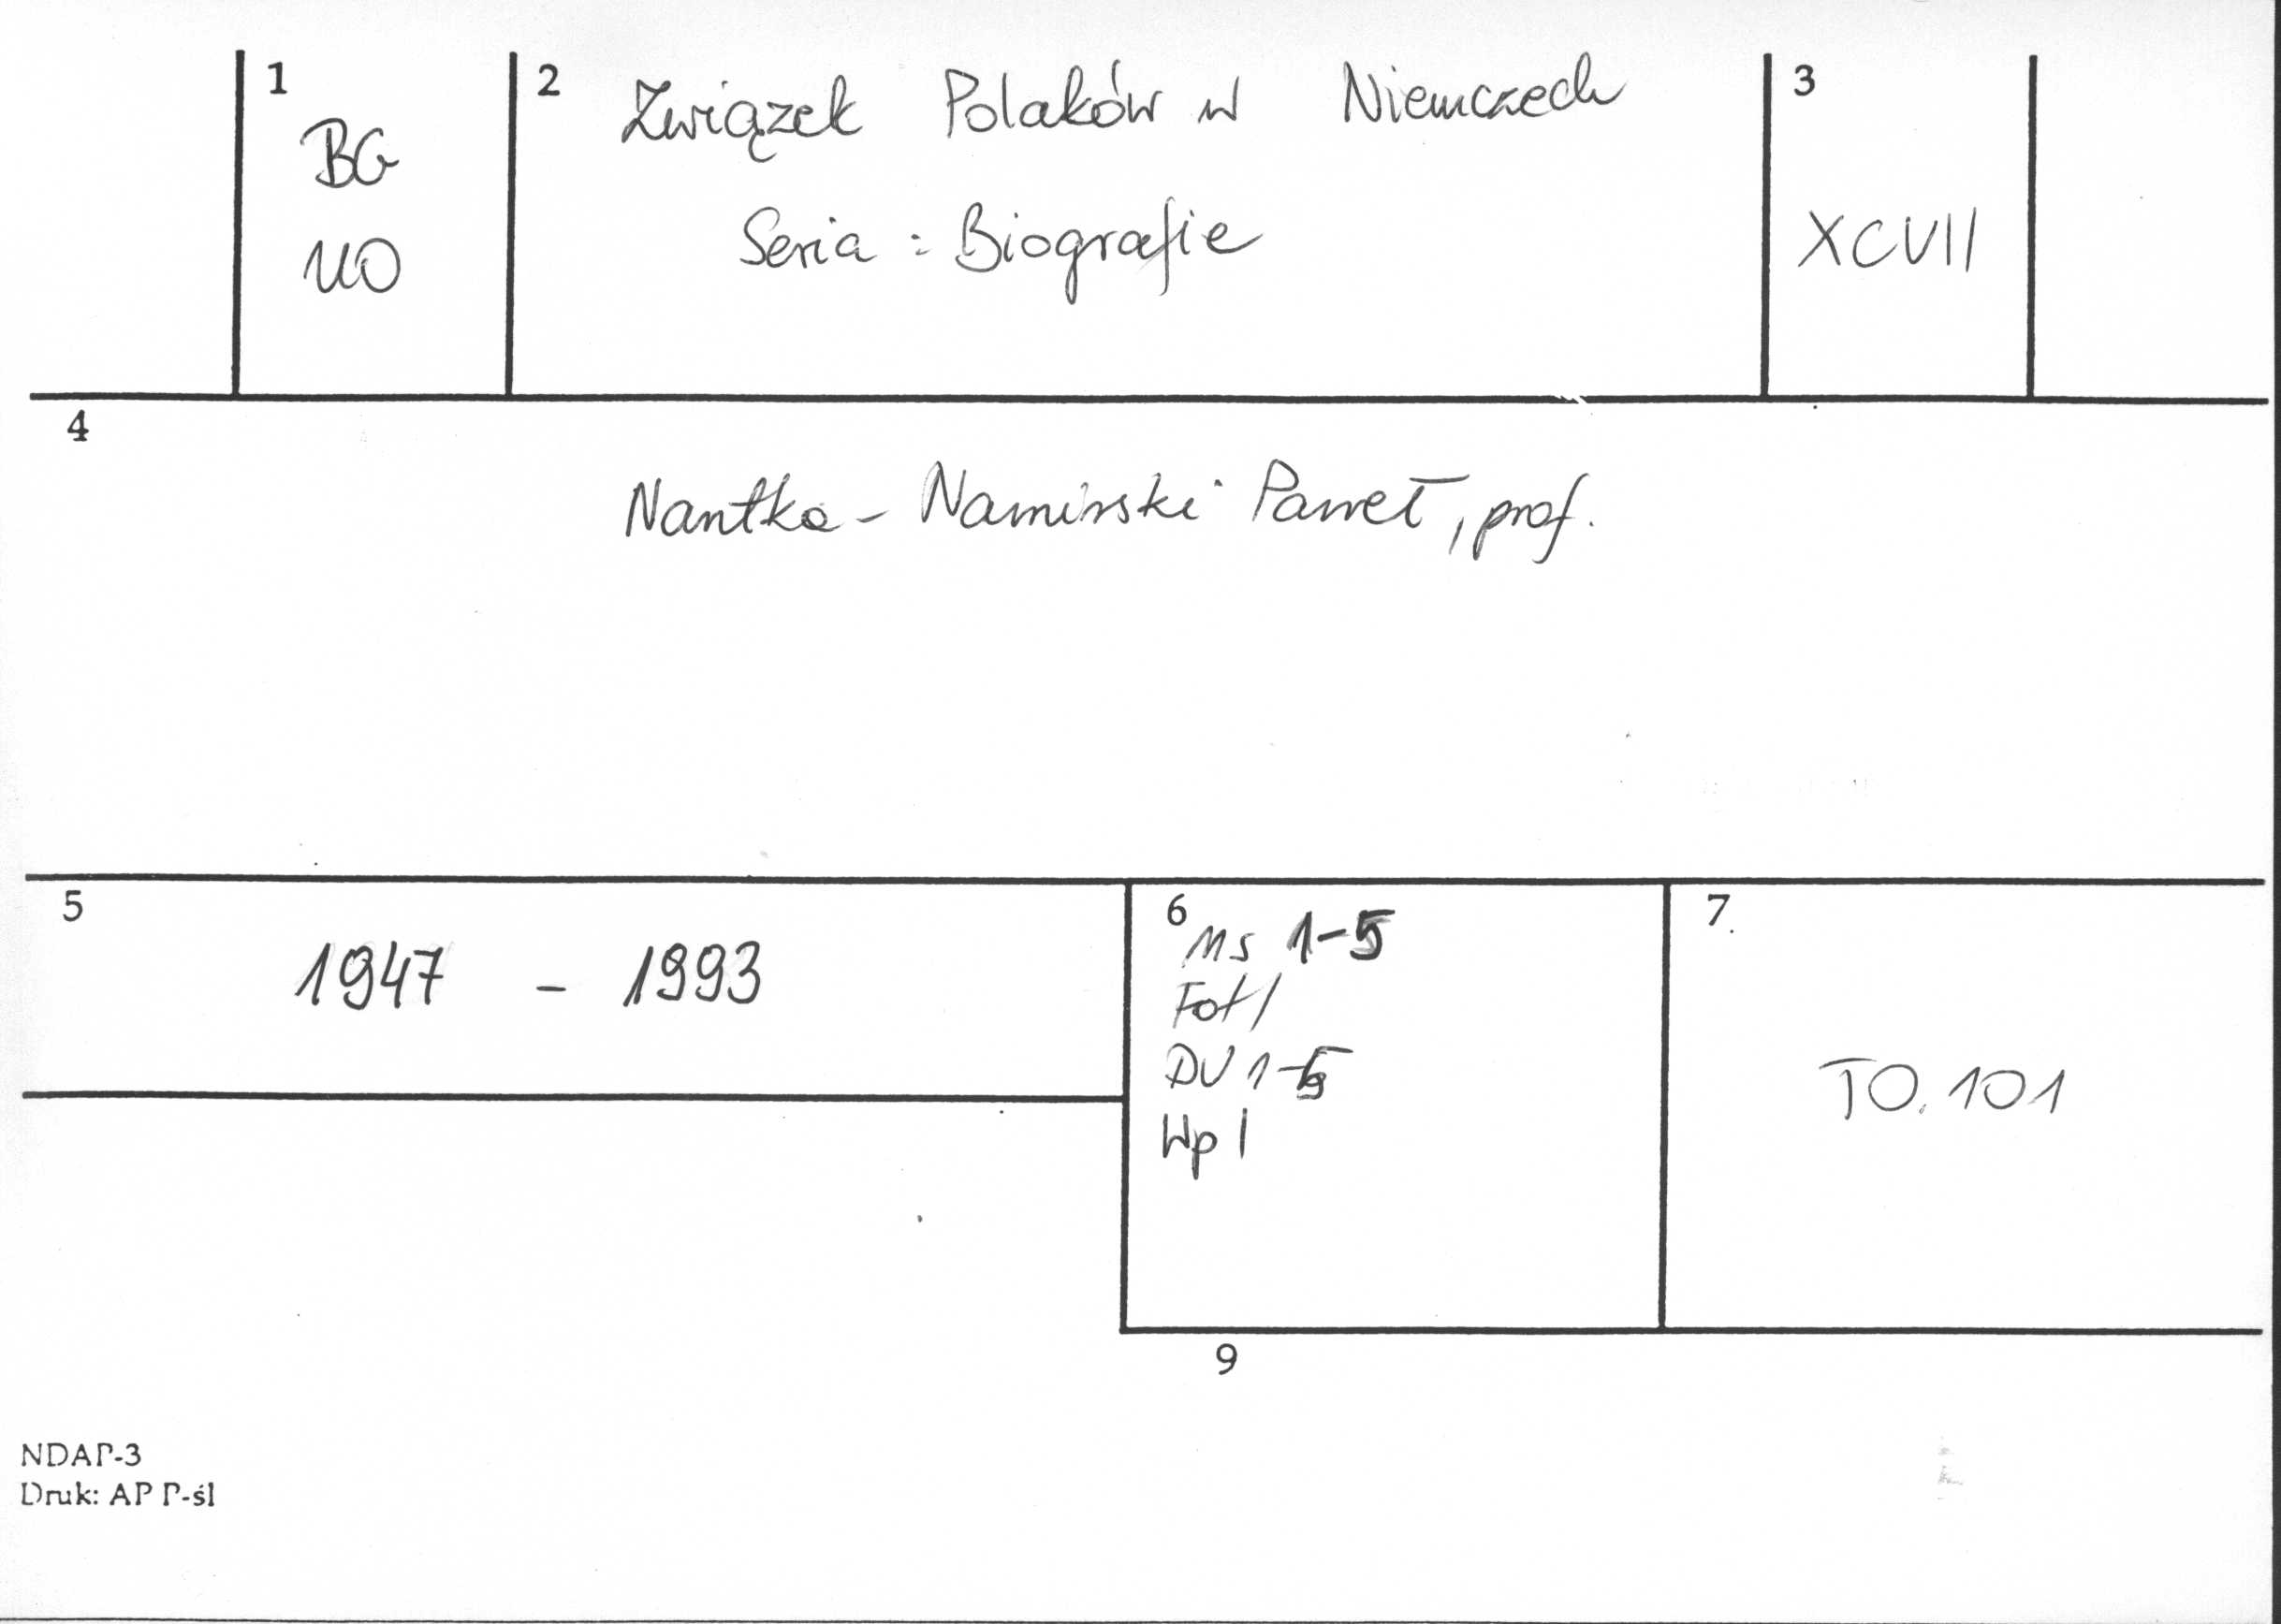 1
BG
UO
2
Związek Polaków w Niemczech
Seria : Biografie
3
XCVII
4
Nantka - Namirski Paweł, prof.
5
1947 - 1993
6
Ms 1-5
Fot 1
DU 1-5
Wp 1
7
TO. 101
9
NDAP-3
Druk: AP P-śl